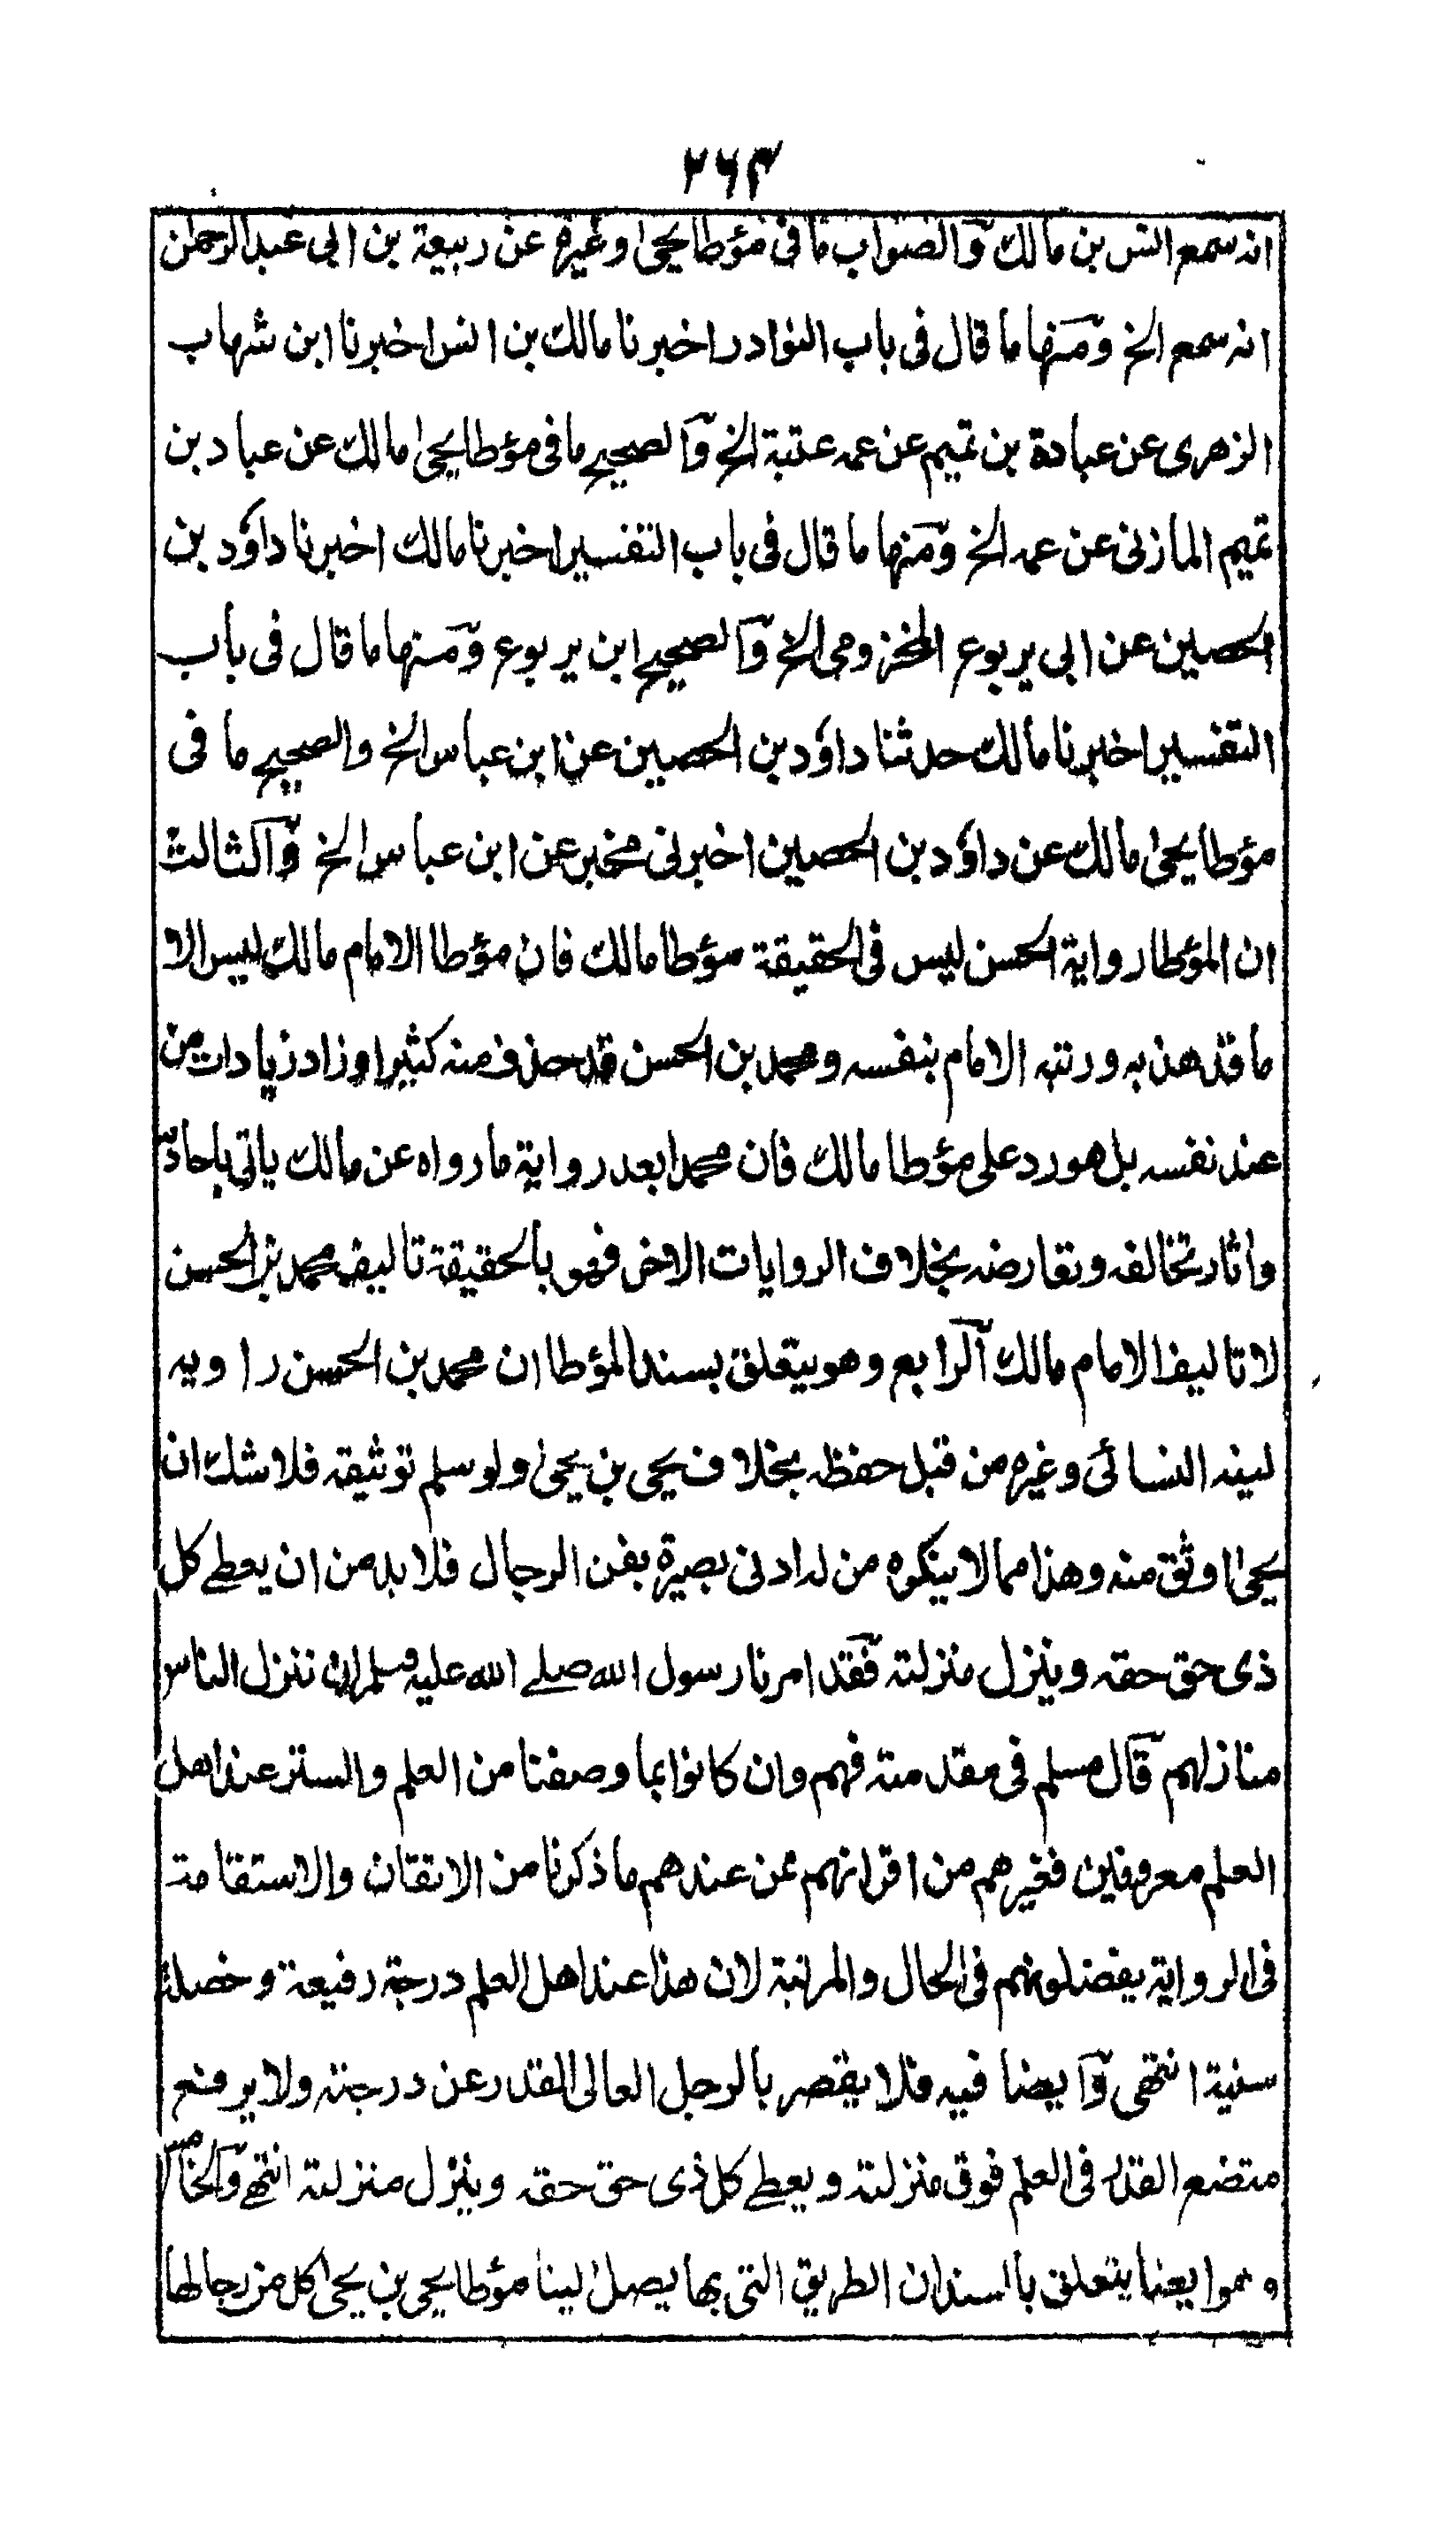 ۲۶۴
انه سمع انس بن مالك والصواب ما فى مؤطا يحيىٰ وغيره عن ربيعة بن ابى عبد الرحمٰن
انه سمع الخ ومنها ما قال فى باب النوادر اخبرنا مالك بن انس اخبرنا ابن شهاب
الزهرى عن عبادة بن تميم عن عمه عتبة الخ والصحيح ما فى مؤطا يحيىٰ مالك عن عباد بن
تميم المازنى عن عمه الخ ومنها ما قال فى باب التفسير اخبرنا مالك اخبرنا داؤد بن
الحصين عن ابى يربوع المخزومى الخ والصحيح ابن يربوع ومنها ما قال فى باب
التفسير اخبرنا مالك حدثنا داؤد بن الحصين عن ابن عباس الخ والصحيح ما فى
مؤطا يحيىٰ مالك عن داؤد بن الحصين اخبرنى مخبر عن ابن عباس الخ والثالث
ان المؤطا رواية الحسن ليس فى الحقيقة مؤطا مالك فان مؤطا الامام مالك ليس الا
ما قد هذبه ورتبه الامام بنفسه ومحمد بن الحسن قد حذف منه كثيرا وزاد زيادات من
عند نفسه بل هو رد على مؤطا مالك فان محمدا بعد رواية ما رواه عن مالك ياتى باحاديث
واثار تخالفه وتعارضه بخلاف الروايات الاخر فهو بالحقيقة تاليف محمد بن الحسن
لا تاليف الامام مالك الرابع وهو يتعلق بسند المؤطا ان محمد بن الحسن راويه
لينه النسائى وغيره من قبل حفظه بخلاف يحيى بن يحيىٰ ولو سلم توثيقه فلا شك ان
يحيىٰ اوثق منه وهذا مما لا ينكره من له ادنى بصيرة بفن الرجال فلا بد من ان يعطے كل
ذى حق حقه وينزل منزلته فقد امرنا رسول الله صلے الله عليه وسلم ان ننزل الناس
منازلهم قال مسلم فى مقدمته فهم وان كانوا بما وصفنا من العلم والستر عند اهل
العلم معروفين فغيرهم من اقرانهم ممن عندهم ما ذكرنا من الاتقان والاستقامة
فى الرواية يفضلونهم فى الحال والمرتبة لان هذا عند اهل العلم درجة رفيعة وخصلة
سنية انتهى وايضا فيه فلا يقصر بالرجل العالى القدر عن درجته ولا يرفع
متضع القدر فى العلم فوق منزلته ويعطے كل ذى حق حقه وينزل منزلته انتهے والخامس
وهو ايضا يتعلق بالسند ان الطريق التى بها يصل الينا مؤطا يحيى بن يحيىٰ كل من رجالها